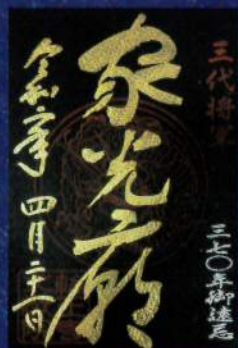 三代将軍
三七〇年御遠忌
家光廟
令和二年 四月二十一日